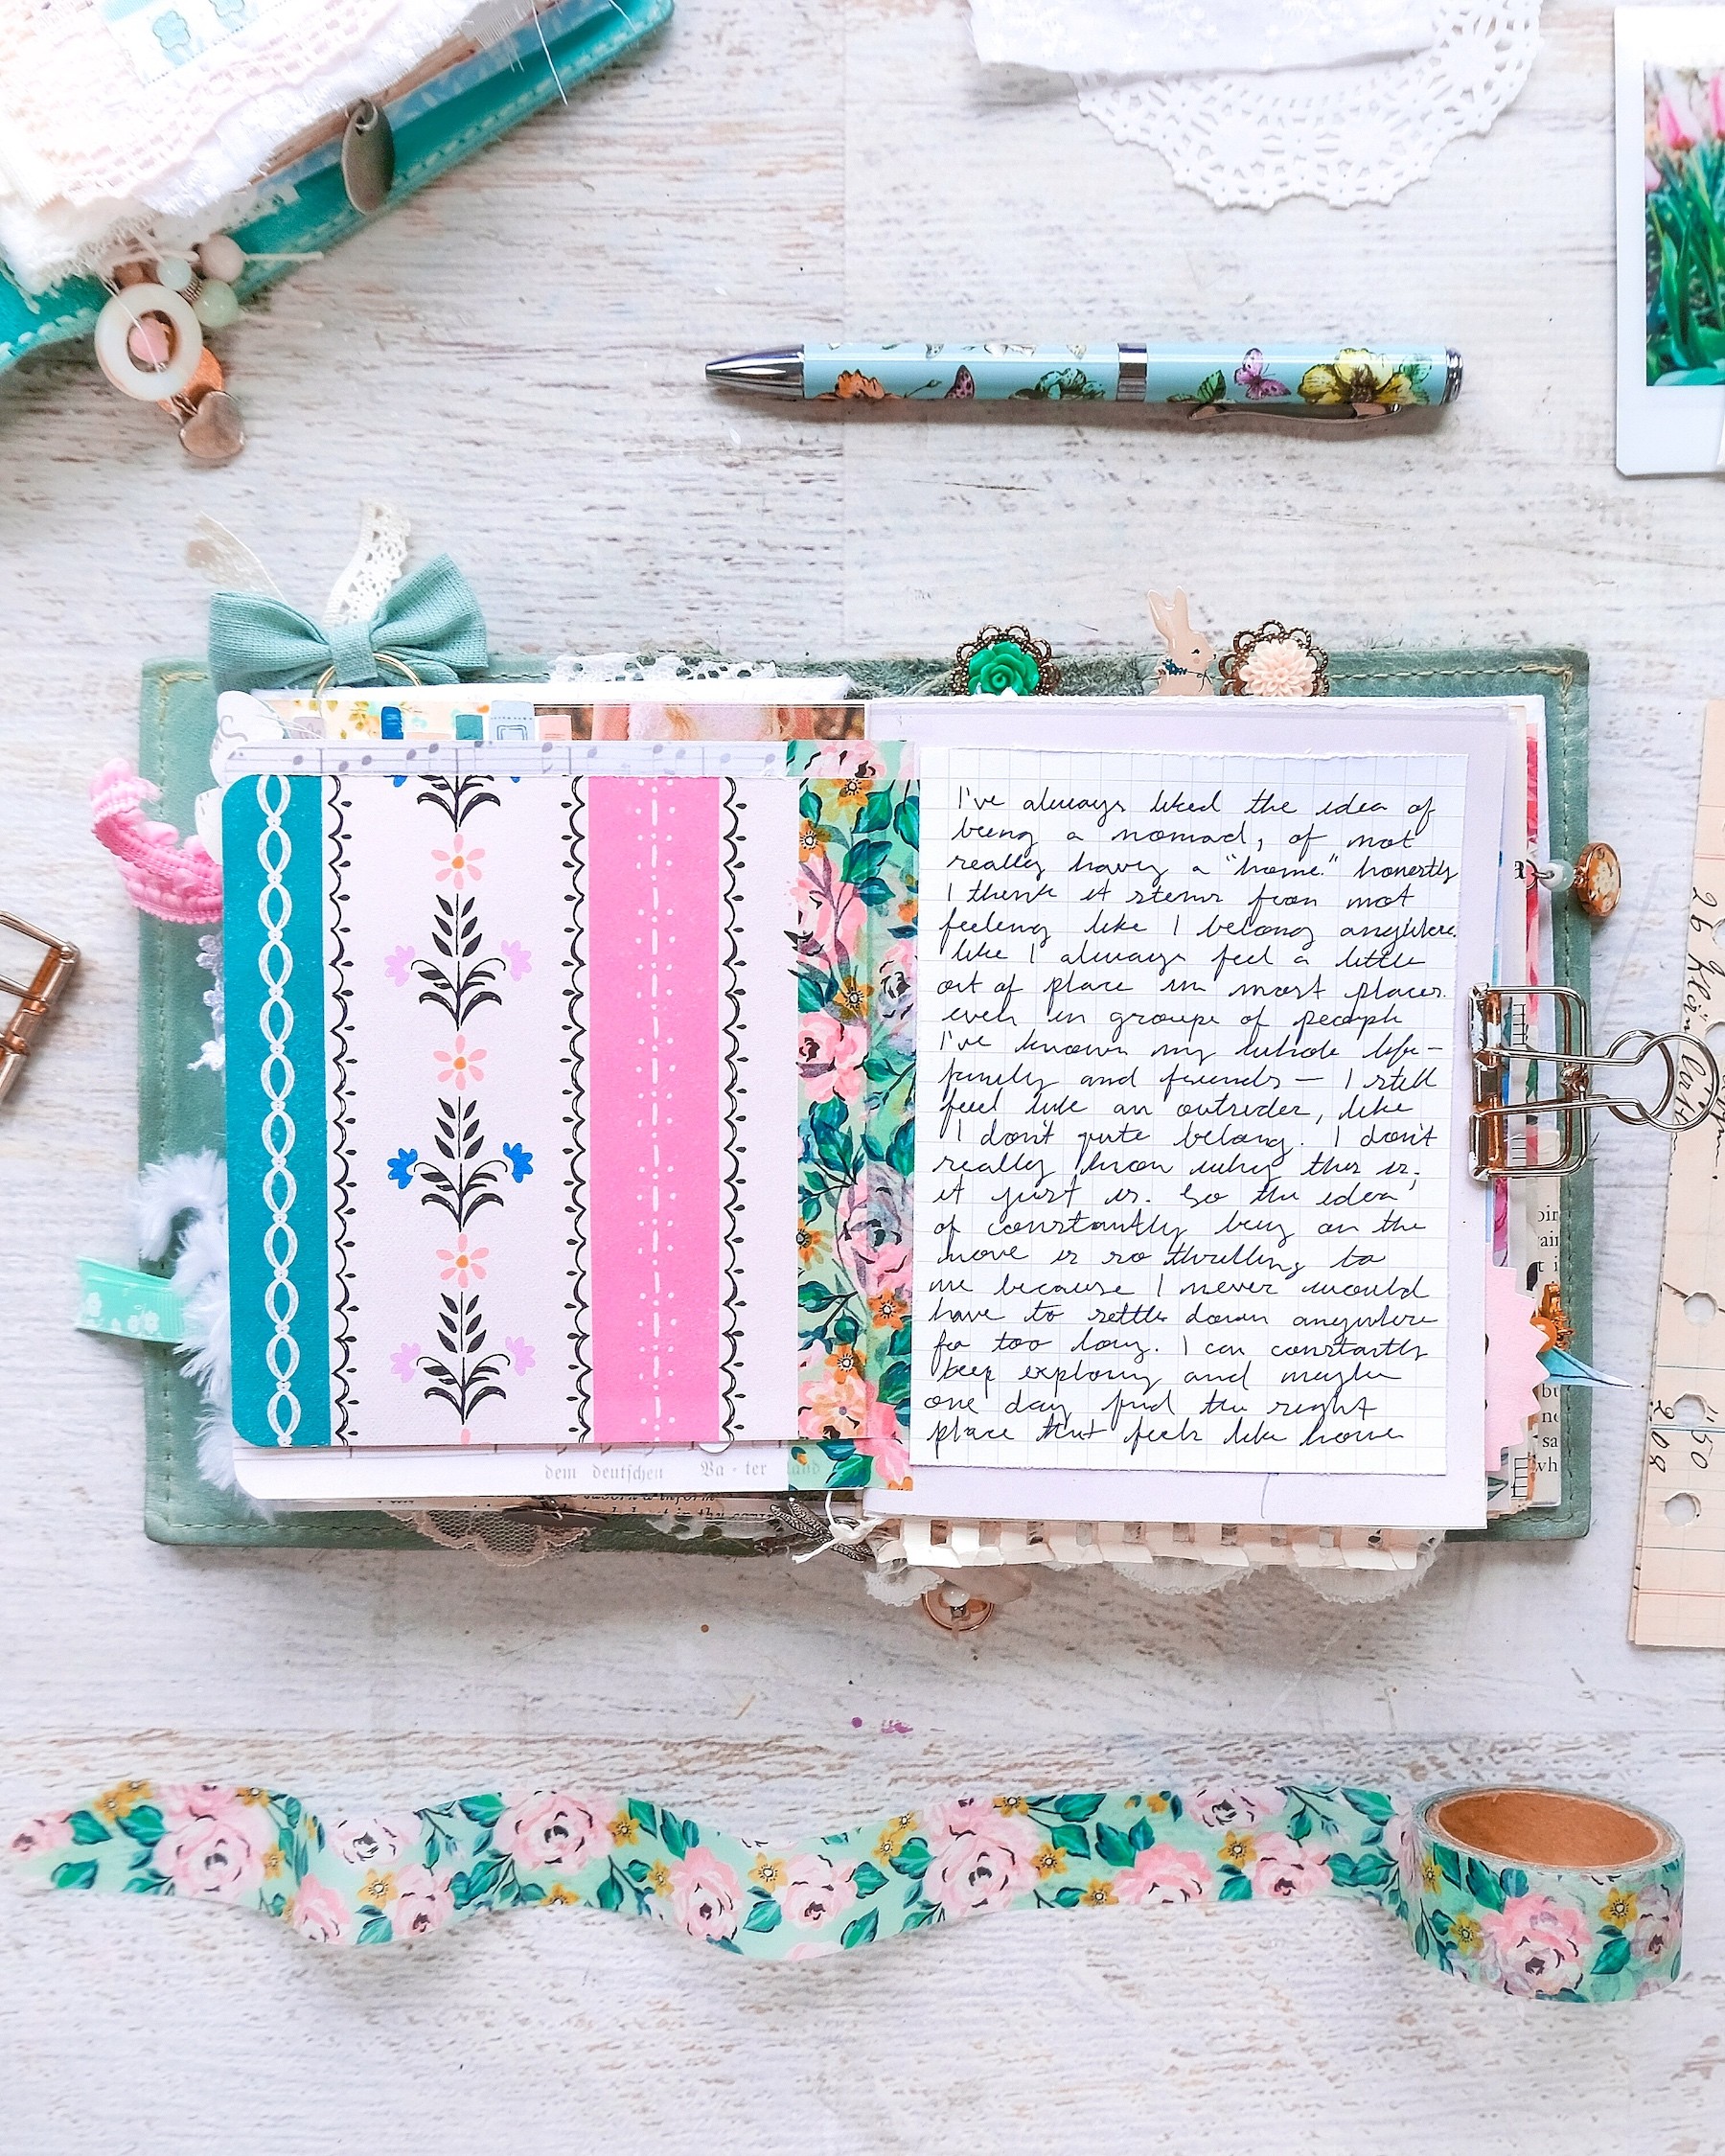 I've always liked the idea of
being a nomad, of not
really having a "home." honestly
I think it stems from not
feeling like I belong anywhere.
like I always feel a little
out of place in most places.
even in groups of people
I've known my whole life—
family and friends — I still
feel like an outsider, like
I don't quite belong. I don't
really know why this is,
it just is. So the idea
of constantly being on the
move is so thrilling to
me because I never would
have to settle down anywhere
for too long. I can constantly
keep exploring and maybe
one day find the right
place that feels like home
dem deutschen Va - ter land